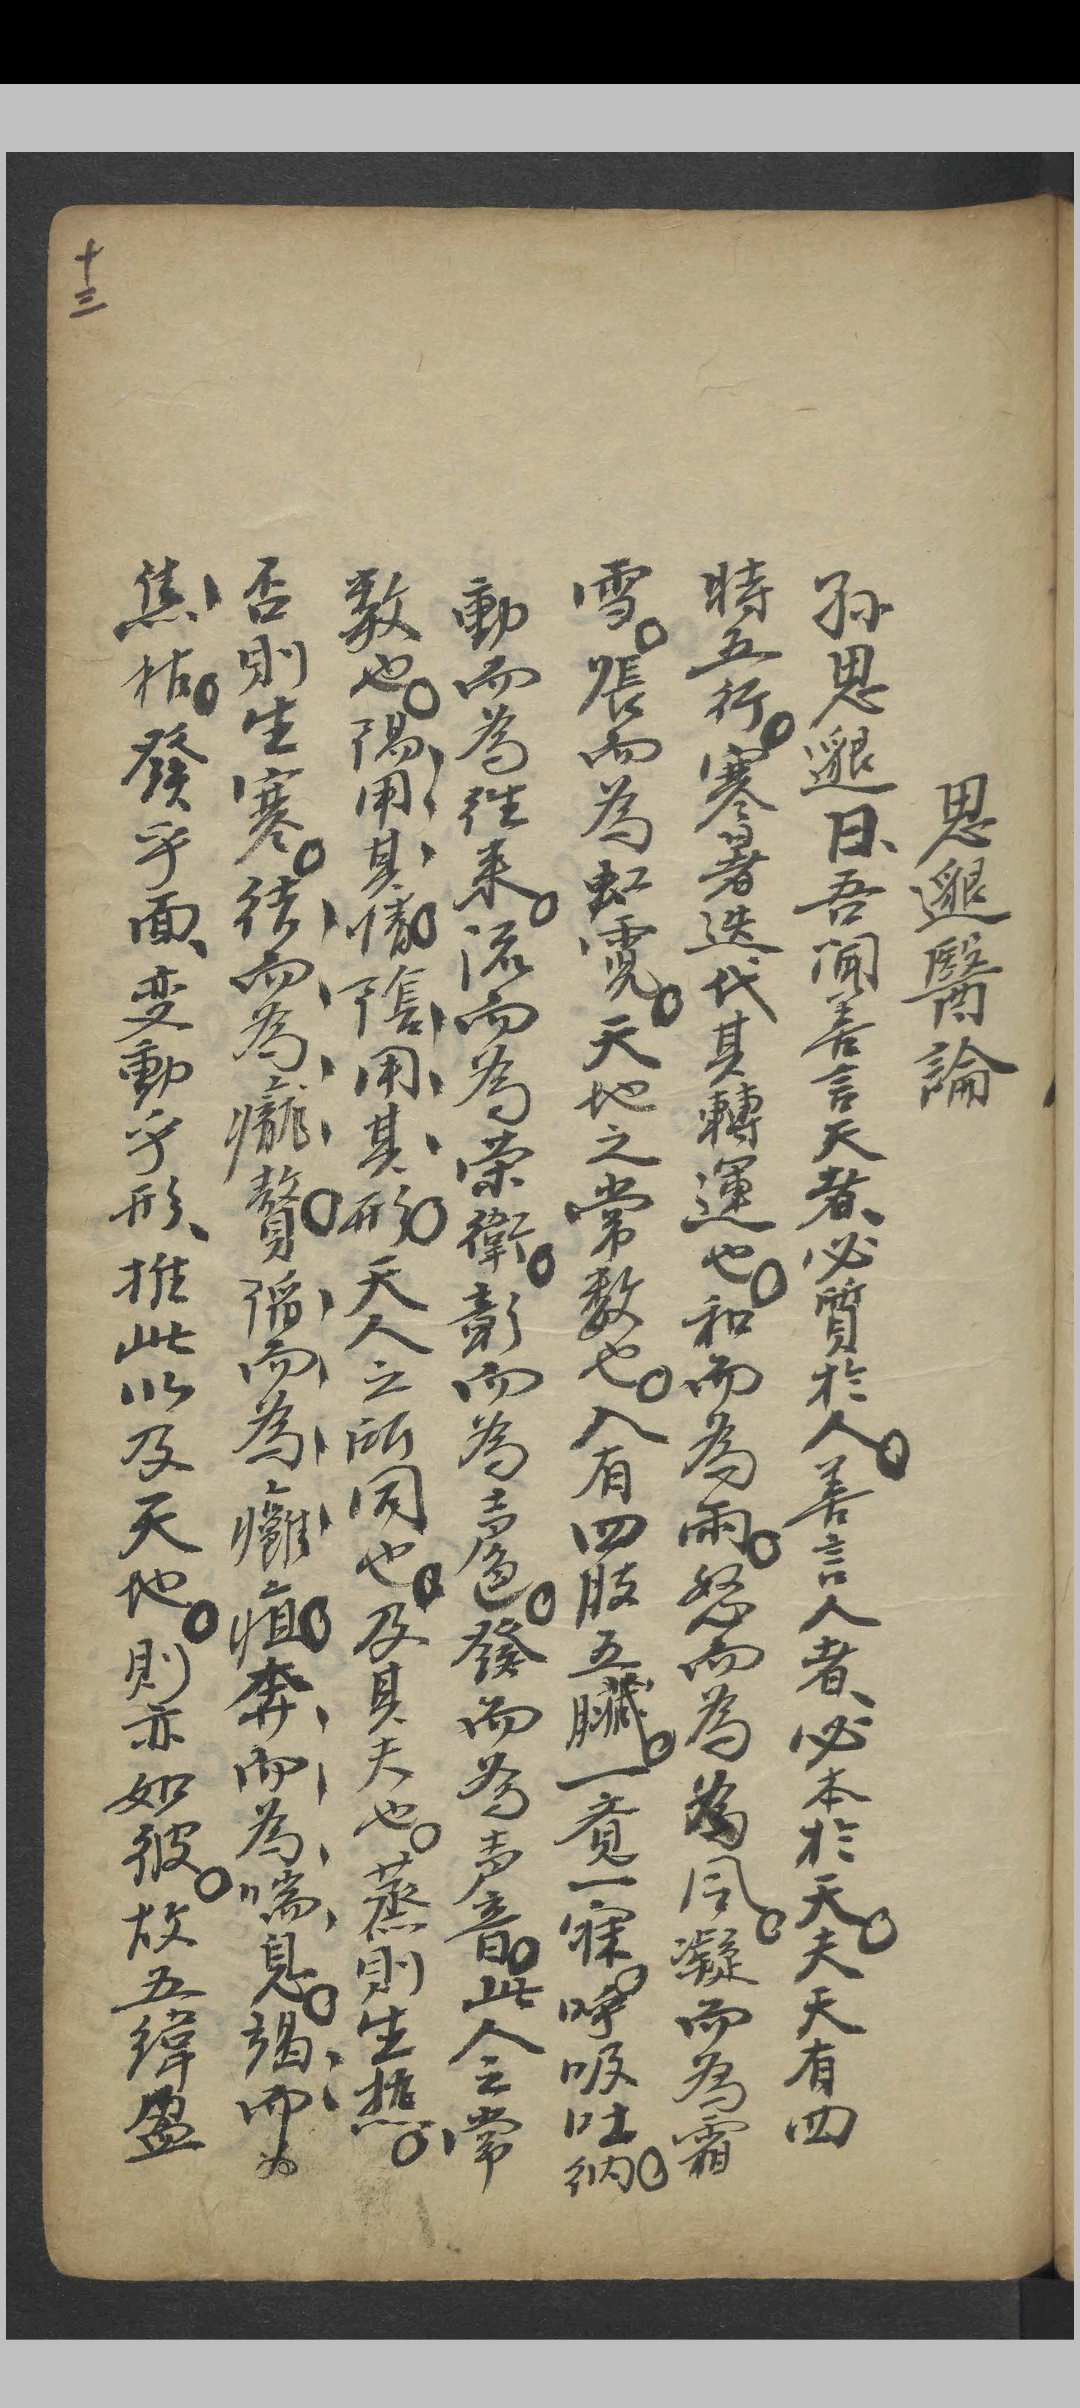 十三
思邈醫論
孫思邈曰、吾聞善言天者、必質於人。善言人者、必本於天。夫天有四
時五行。寒暑迭代其轉運也。和而為雨。怒而為為風。凝而為霜
雪。張而為虹霓。天地之常数也。人有四肢五臟。一覔一寐。呼吸吐納。
動而為徃来。流而為荣衛。彰而為声色。發而為声音。此人之常
数也。陽用其精。隂用其形。天人之所同也。及其失也。蒸則生热。
否則生寒。结而為癰贅。陷而為癰疽。奔而為喘息。竭而为
焦枯。發乎面、变動乎形、推此以及天地。則亦如彼。故五緯盈